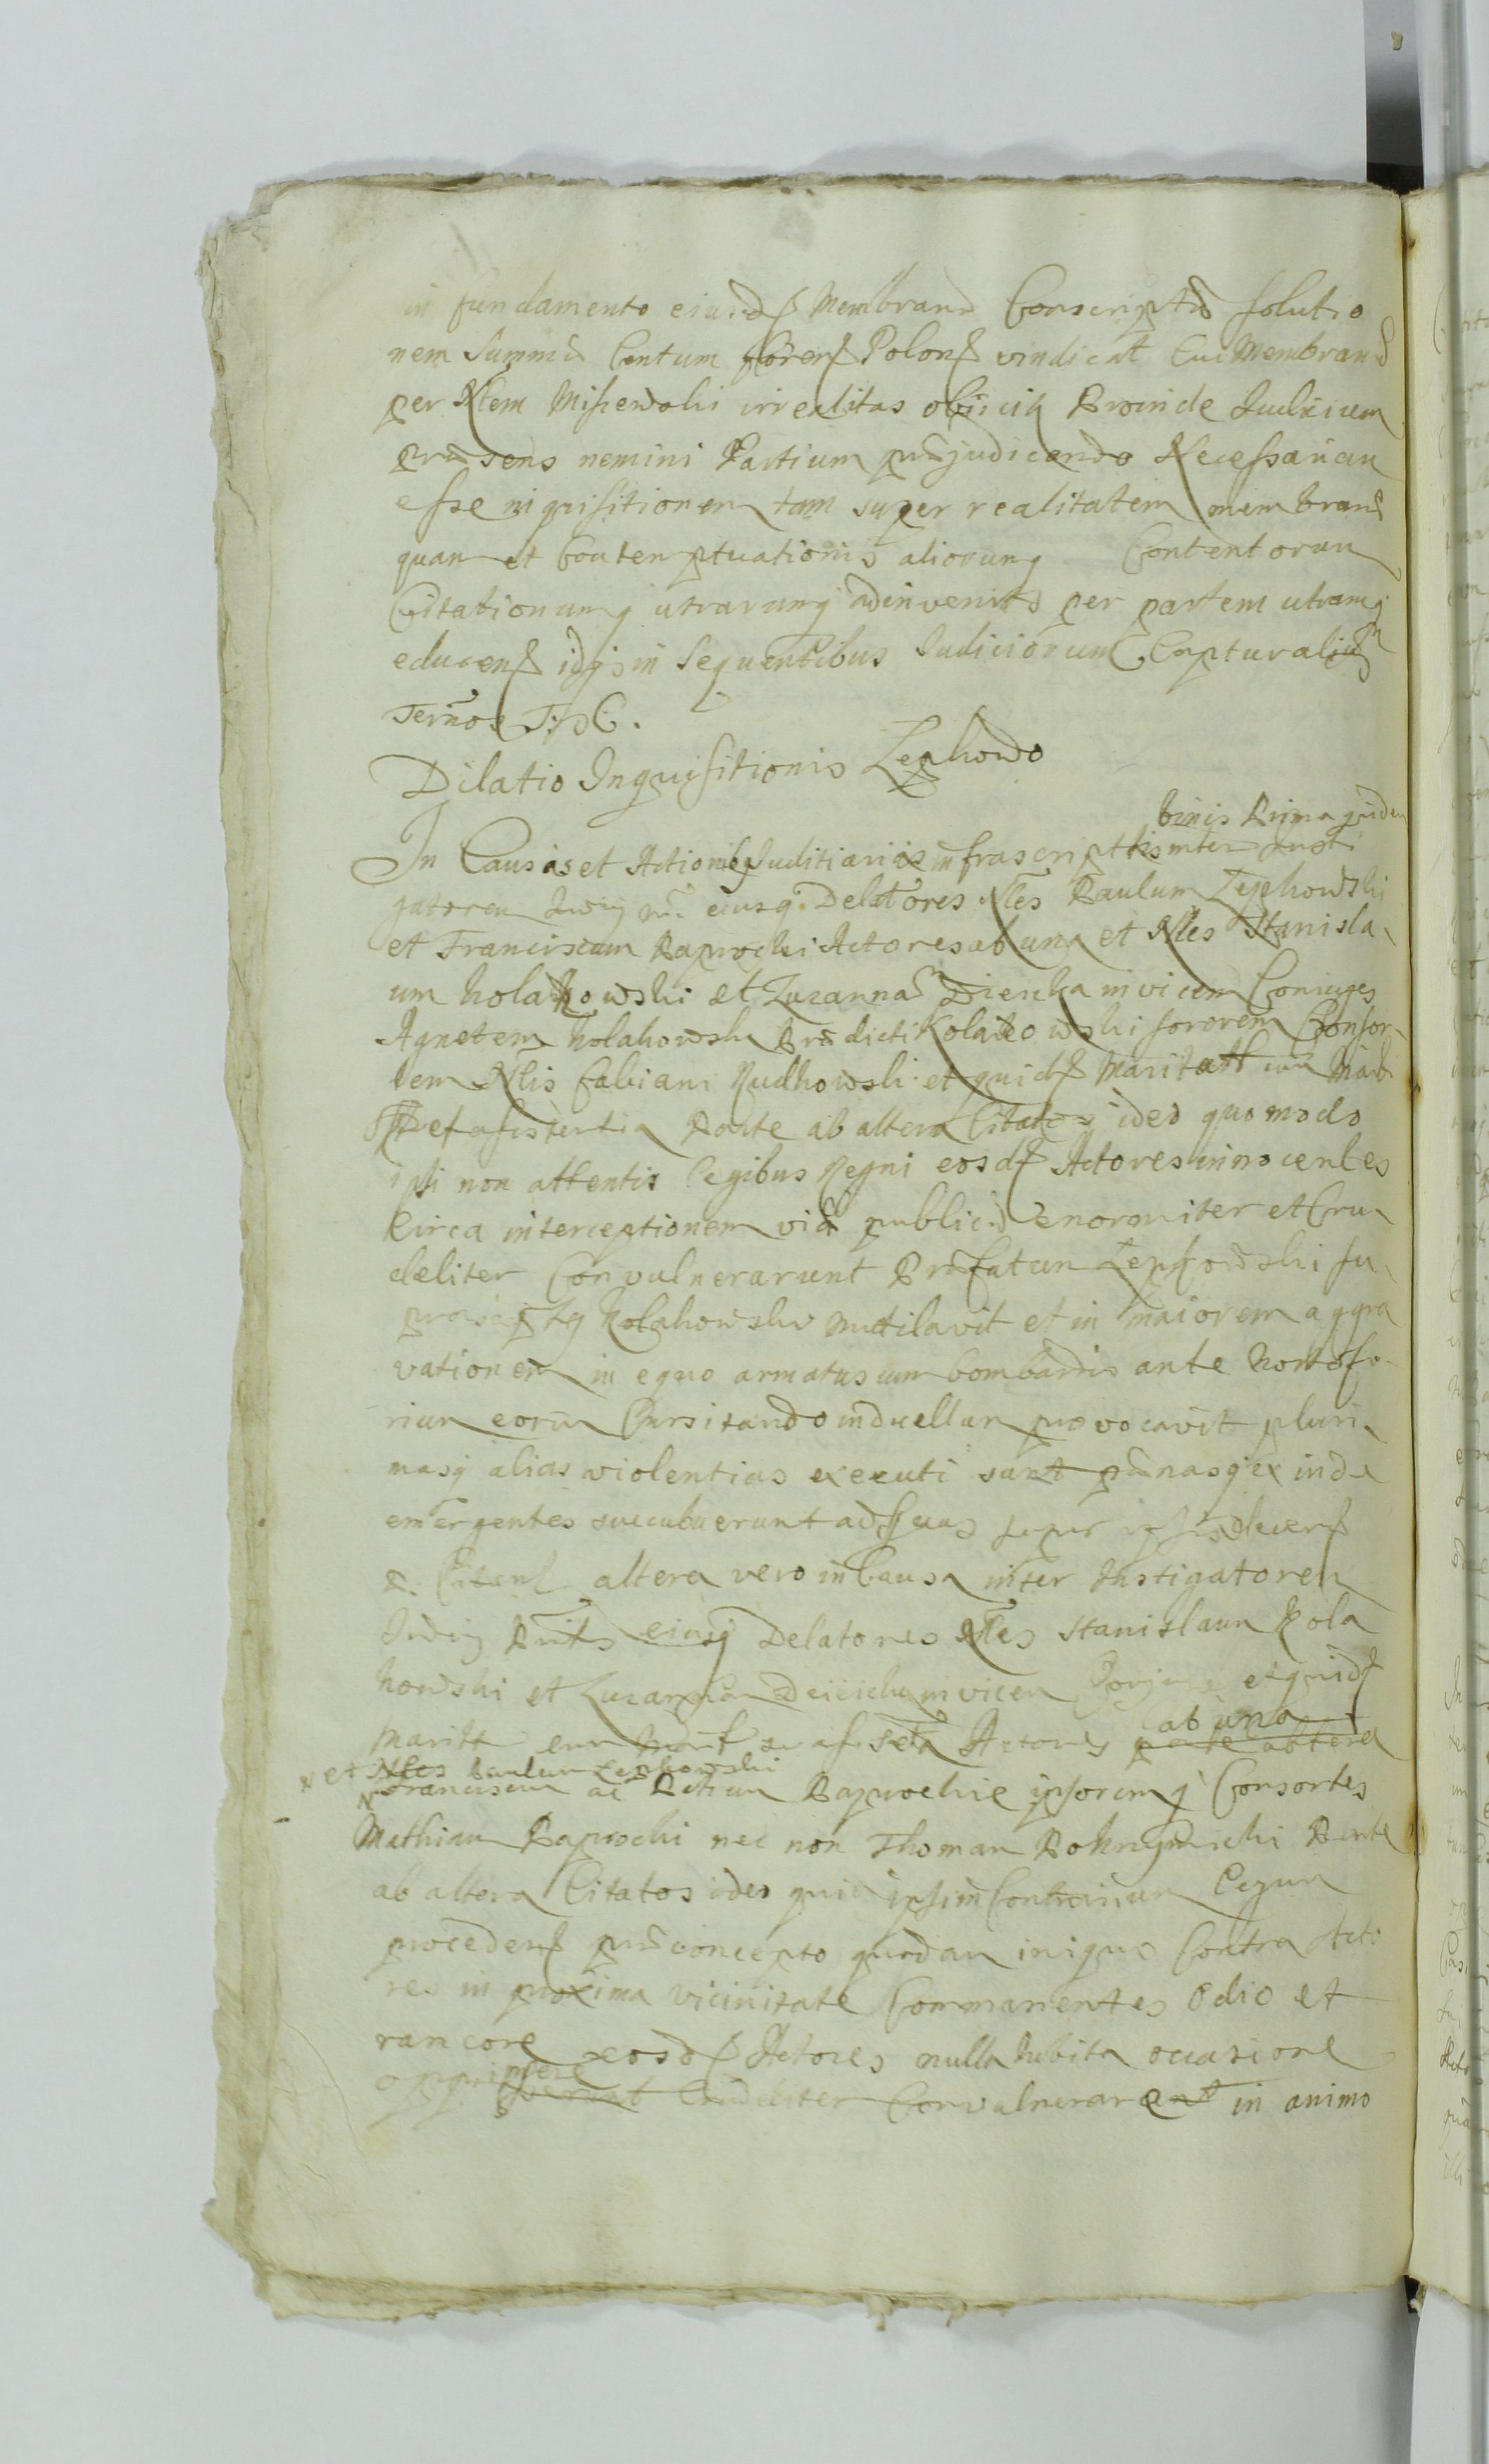 in fundamento eiusd Membranæ Conscriptæ solutio
nem Summæ Centum floren Polon vindicat Cui Membranæ
per Nlem Misiewski irrealitas obiicit Proinde Iudicium
præsens nemini Partium præjudicando Necessariam
esse inquisitionem tam super realitatem membranæ
quam et Contemptuationis aliorumq Contentorum
Citationumq utrarumq adinvenit per partem utramq
educen idq in Sequentibus Iudiciorum Capturalium
Termos
Dilatio Inquisitionis Lepkowo
binis Prima quidem
In Causis et Actionibq Iuditiariis infrascriptis inter Insti
gatorem Iudiq eiusq Delatores Nles Paulum Lepkowski
et Franciscum Paprocki Actores ab una et Nles Stanisla
um Kolakowski et Zuzannam invicem Coniuges
Agnetem Kolakowski Prædicti Kolakowski sororem Consor
tem Nlis Fabiani Rudkowski et quid Maritatt cum Marit
et assistentia Parte ab altera Citatos ideo quomodo
ipsi non attentis legibus Regni eosd Actores innocentes
Circa interceptionem viæ publicæ enormiter et Cru
deliter Convulnerarunt Præfatum Lepkowski su
Kolakowski mutilavit et in maiorem aggra
vationem in equo armatus cum bombardis ante
rium eorum Cursitando in duellum provocavit pluri
masq alias violentias executi sunt pænasq ex inde
emergentes succubuerunt ad quas ipsis decern
Citent altera vero in Causa inter Instigatorem
Iudiq eiusq Delatores Nles Stanislaum Kola
kowski et Zuzannam invicem et quid
maritt cum Actores parte ab altera
ab una
et Nles Paulum Lepkowski
Franciscum ac Petrum Paprockie ipsorumq Consortes
Mathiam Paprocki nec non Thomam Parte
ab altera Citatos ideo quia ipsi in Contrarium Legum
proceden præconcepto quodam iniquo Contra Acto
res in proxima vicinitate Commanentes Odio et
rancore eosd Actores nulla habita occasione
opprimere
Crudeliter Convulnerarent in animo